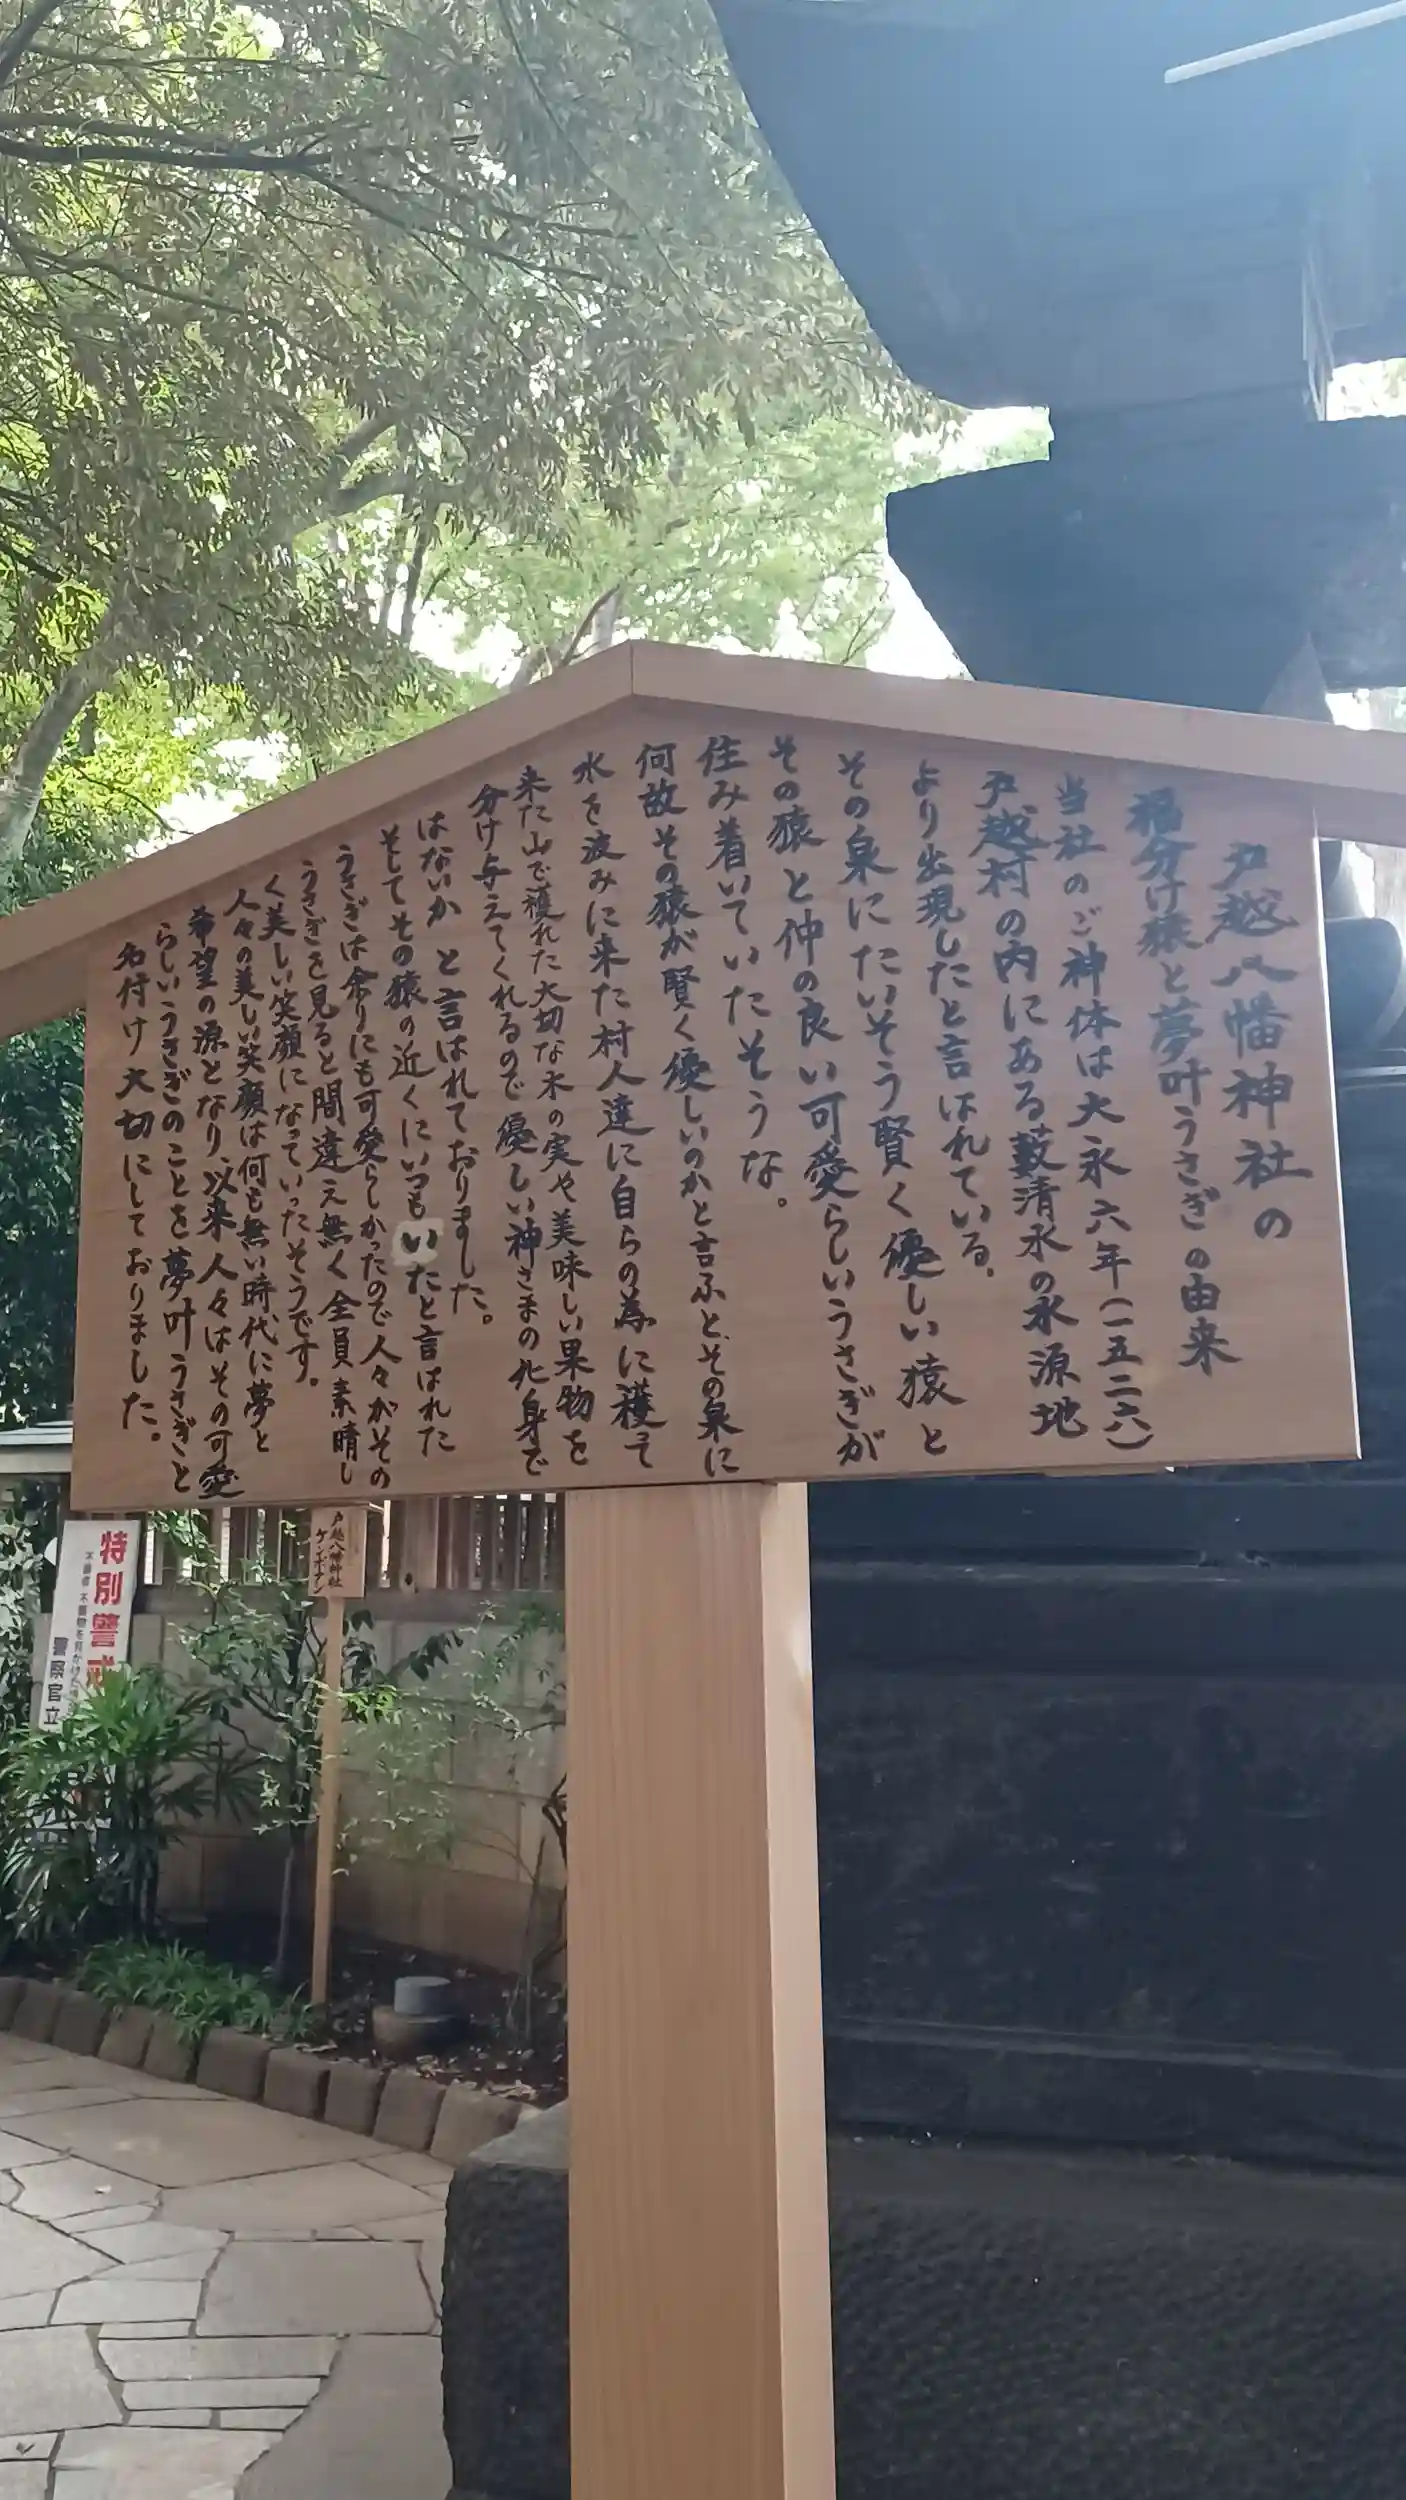 戸越八幡神社の
福分け猿と夢叶うさぎの由来
当社のご神体は大永六年(一五二六)
戸越村の内にある藪清水の水源地
より出現したと言はれている。
その泉にたいそう賢く優しい猿と
その猿と仲の良い可愛らしいうさぎが
住み着いていたそうな。
何故その猿が賢く優しいのかと言ふと、その泉に
水を波みに来た村人達に自らの為に穫って
来た山で穫れた大切な木の実や美味しい果物を
分け与えてくれるので優しい神さまの化身で
はないか と言はれておりました。
そしてその猿の近くにいつもいたと言はれた
うさぎは余りにも可愛らしかったので人々がその
うさぎを見ると間違え無く全員素晴し
く美しい笑顔になっていったそうです。
人々の美しい笑顔は何も無い時代に夢と
希望の源となり、以来人々はその可愛
らしいうさぎのことを夢叶うさぎと
名付け大切にしておりました。
戸越八幡神社
ケンポナシ
特別警戒
警察官立